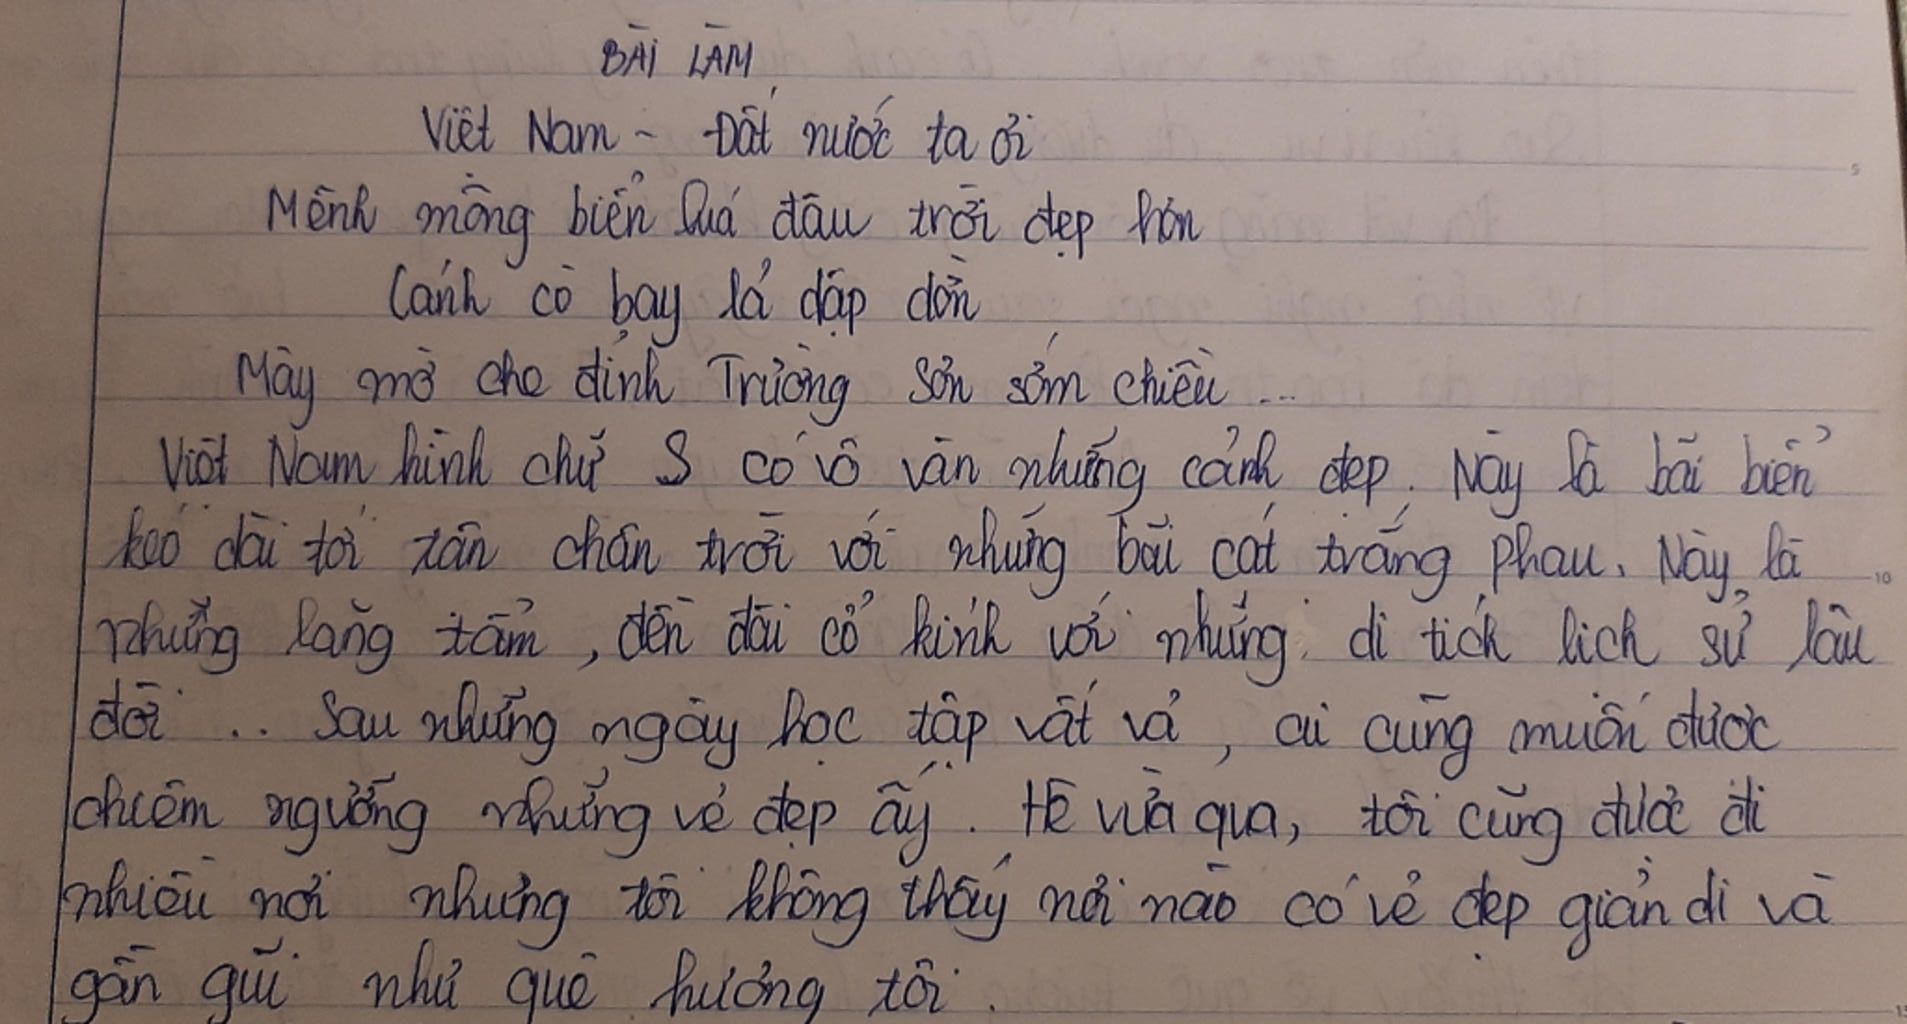 BÀI LÀM
Việt Nam - Đất nước ta ơi
Mênh mông biển lúa đâu trời đẹp hơn
Cánh cò bay lả dập dờn
Mây mờ che đỉnh Trường Sơn sớm chiều...
Việt Nam hình chữ S có vô vàn những cảnh đẹp. Này là bãi biển
kéo dài tới tận chân trời với những bãi cát trắng phau. Này, là
những lăng tẩm, đền đài cổ kính với những di tích lịch sử lâu
đời... Sau những ngày học tập vất vả, ai cũng muốn được
chiêm ngưỡng những vẻ đẹp ấy. Hè vừa qua, tôi cũng được đi
nhiều nơi nhưng tôi không thấy nơi nào có vẻ đẹp giản dị và
gần gũi như quê hương tôi.